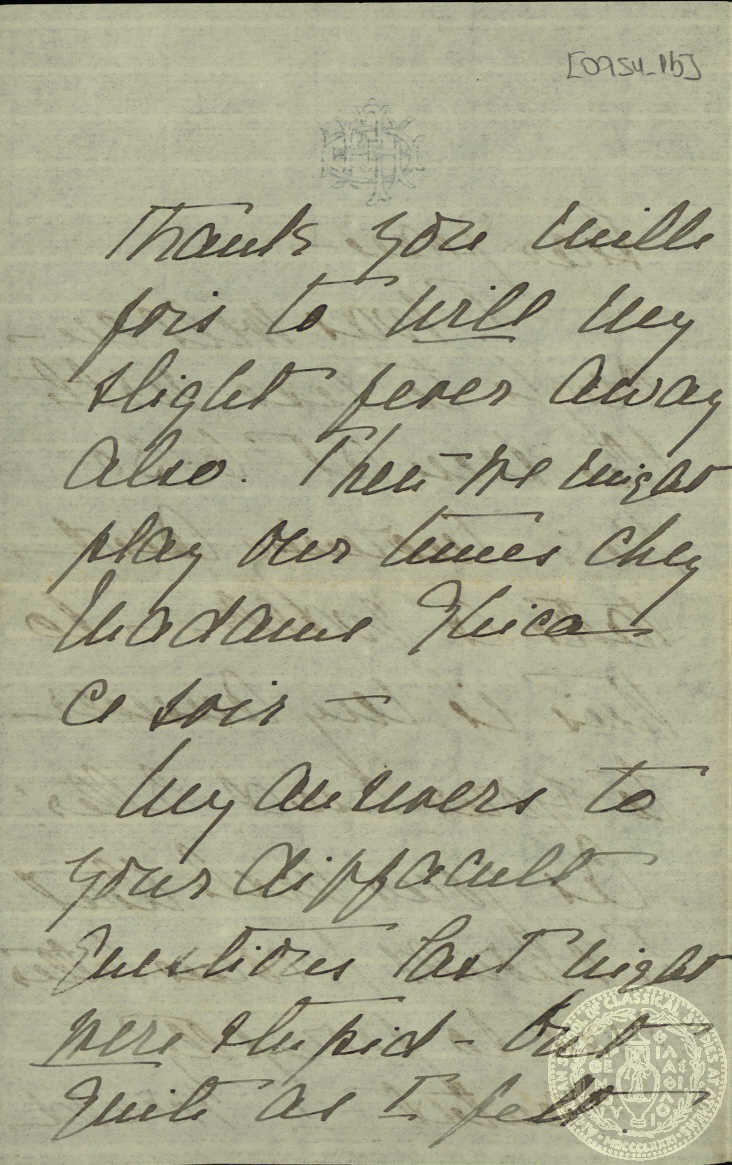 [0954_1b]
Thank you mille
fois to will my
slight fever away
also. Then we might
play our tunes chez
Madame Ghica
ce soir —
My answers to
your diffacult
Questions last night
were stupid – but
Quite as I felt.